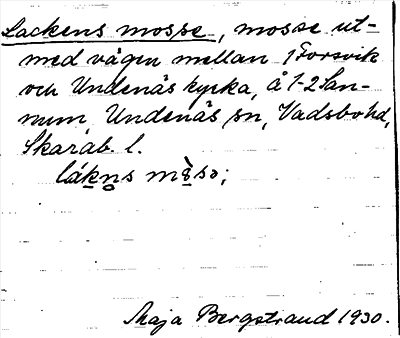 Lackens mosse, mosse ut-
med vägen mellan Forsvik
och Undenäs kyrka, å 1-2 San-
num, Undenäs sn, Vadsbo hd,
Skarab. l.
Maja Bergstrand 1930.